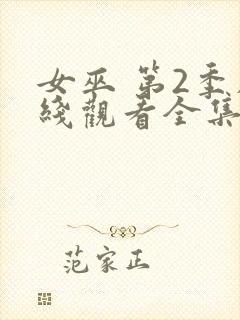 女巫 第2季
綫觀看全集
范家正